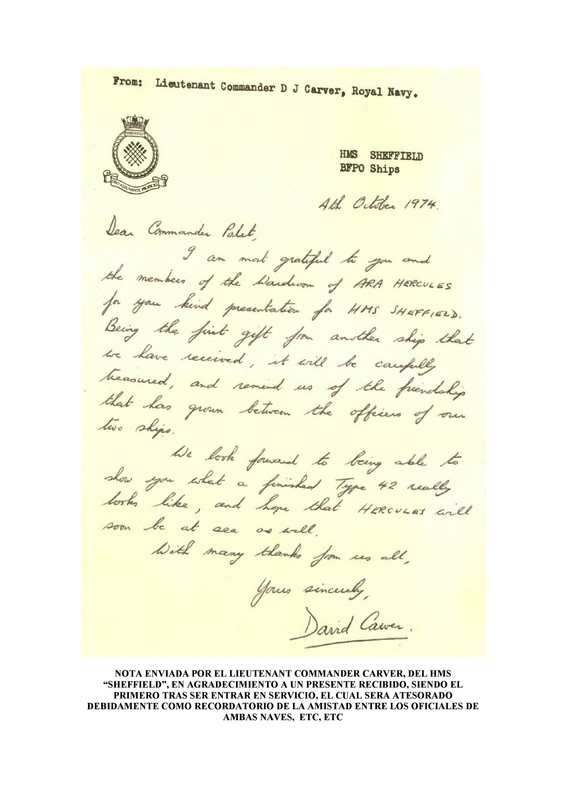 From: Lieutenant Commander D J Carver, Royal Navy.
SHEFFIELD
HMS SHEFFIELD
BFPO Ships
4th October 1974.
Dear Commander Palet,
I am most grateful to you and
the members of the Wardroom of ARA HERCULES
for your kind presentation for HMS SHEFFIELD.
Being the first gift from another ship that
we have received, it will be carefully
treasured, and remind us of the friendship
that has grown between the officers of our
two ships.
We look forward to being able to
show you what a finished Type 42 really
looks like, and hope that HERCULES will
soon be at sea as well.
With many thanks from us all,
Yours sincerely,
David Carver.
NOTA ENVIADA POR EL LIEUTENANT COMMANDER CARVER, DEL HMS
“SHEFFIELD”, EN AGRADECIMIENTO A UN PRESENTE RECIBIDO, SIENDO EL
PRIMERO TRAS SER ENTRAR EN SERVICIO, EL CUAL SERA ATESORADO
DEBIDAMENTE COMO RECORDATORIO DE LA AMISTAD ENTRE LOS OFICIALES DE
AMBAS NAVES, ETC, ETC